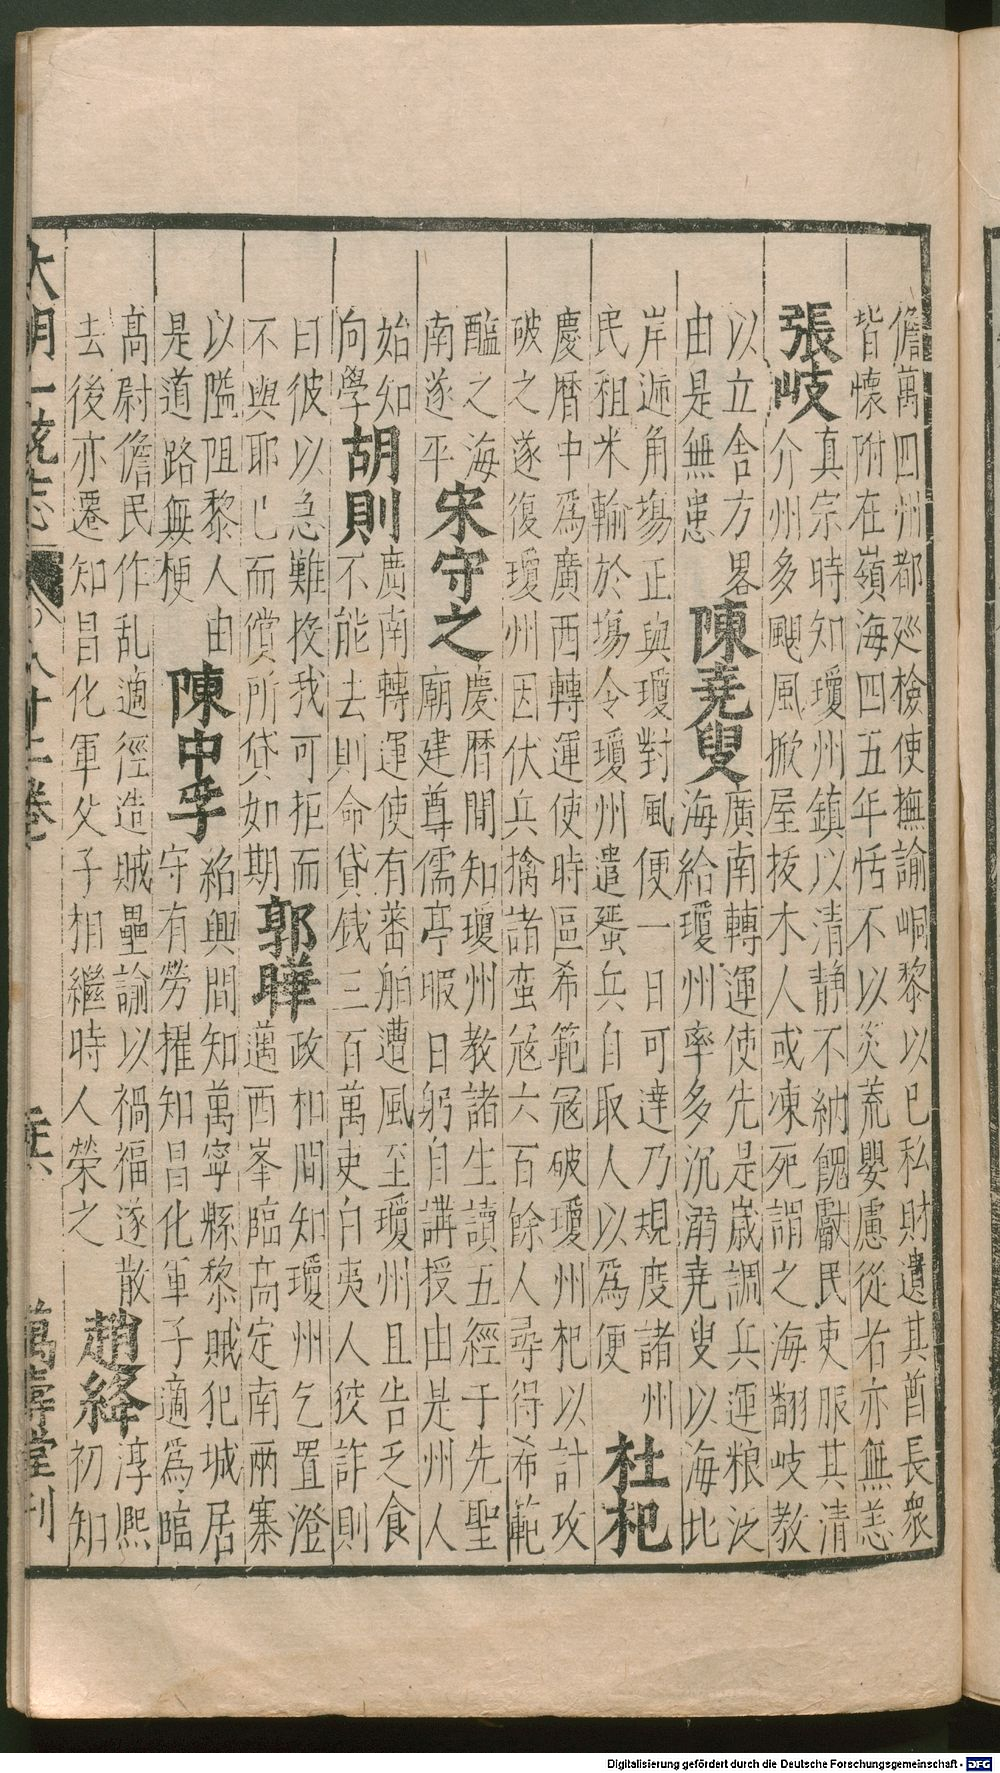 儋萬四州都廵檢使撫諭峒黎以巳私財遺其酋長衆
皆懷附在嶺海四五年恬不以炎荒嬰慮從右亦無恙
張岐
真宗時知瓊州鎮以清静不納餽獻民吏服其清
介州多颶風掀屋拔木人或凍死謂之海翻岐教
以立舍方畧
由是無患
陳堯叟
廣南轉運使先是歳調兵運粮泛
海給瓊州率多沉溺堯叟以海北
岸遞角場正與瓊對風便一日可逹乃規度諸州
民租米輸於塲令瓊州遣蜑兵自取人以爲便
杜杞
慶暦中爲廣西轉運使時區希範冦破瓊州杞以計攻
破之遂復瓊州因伏兵擒諸蛮冦六百餘人尋得希範
醢之海
南遂平
宋守之
慶暦間知瓊州教諸生讀五經于先聖
廟建尊儒亭暇日躬自講授由是州人
始知
向學
胡則
廣南轉運使有蕃舶遭風至瓊州且告乏食
不能去則命貸錢三百萬吏白夷人狡詐則
曰彼以急難投我可拒而
不與耶已而償所貸如期
郭曄
政和間知瓊州乞置澄
邁西峯臨高定南兩寨
以隘阻黎人由
是道路無梗
陳中孚
紹興間知萬寧縣黎賊犯城居
守有勞擢知昌化軍子適爲臨
高尉儋民作乱適徑造賊壘諭以禍福遂散
去後亦遷知昌化軍父子相繼時人榮之
趙絳
淳熙
初知
大明一統志
八十二卷
萬壽堂刊
Digitalisierung gefördert durch die Deutsche Forschungsgemeinschaft - DFG